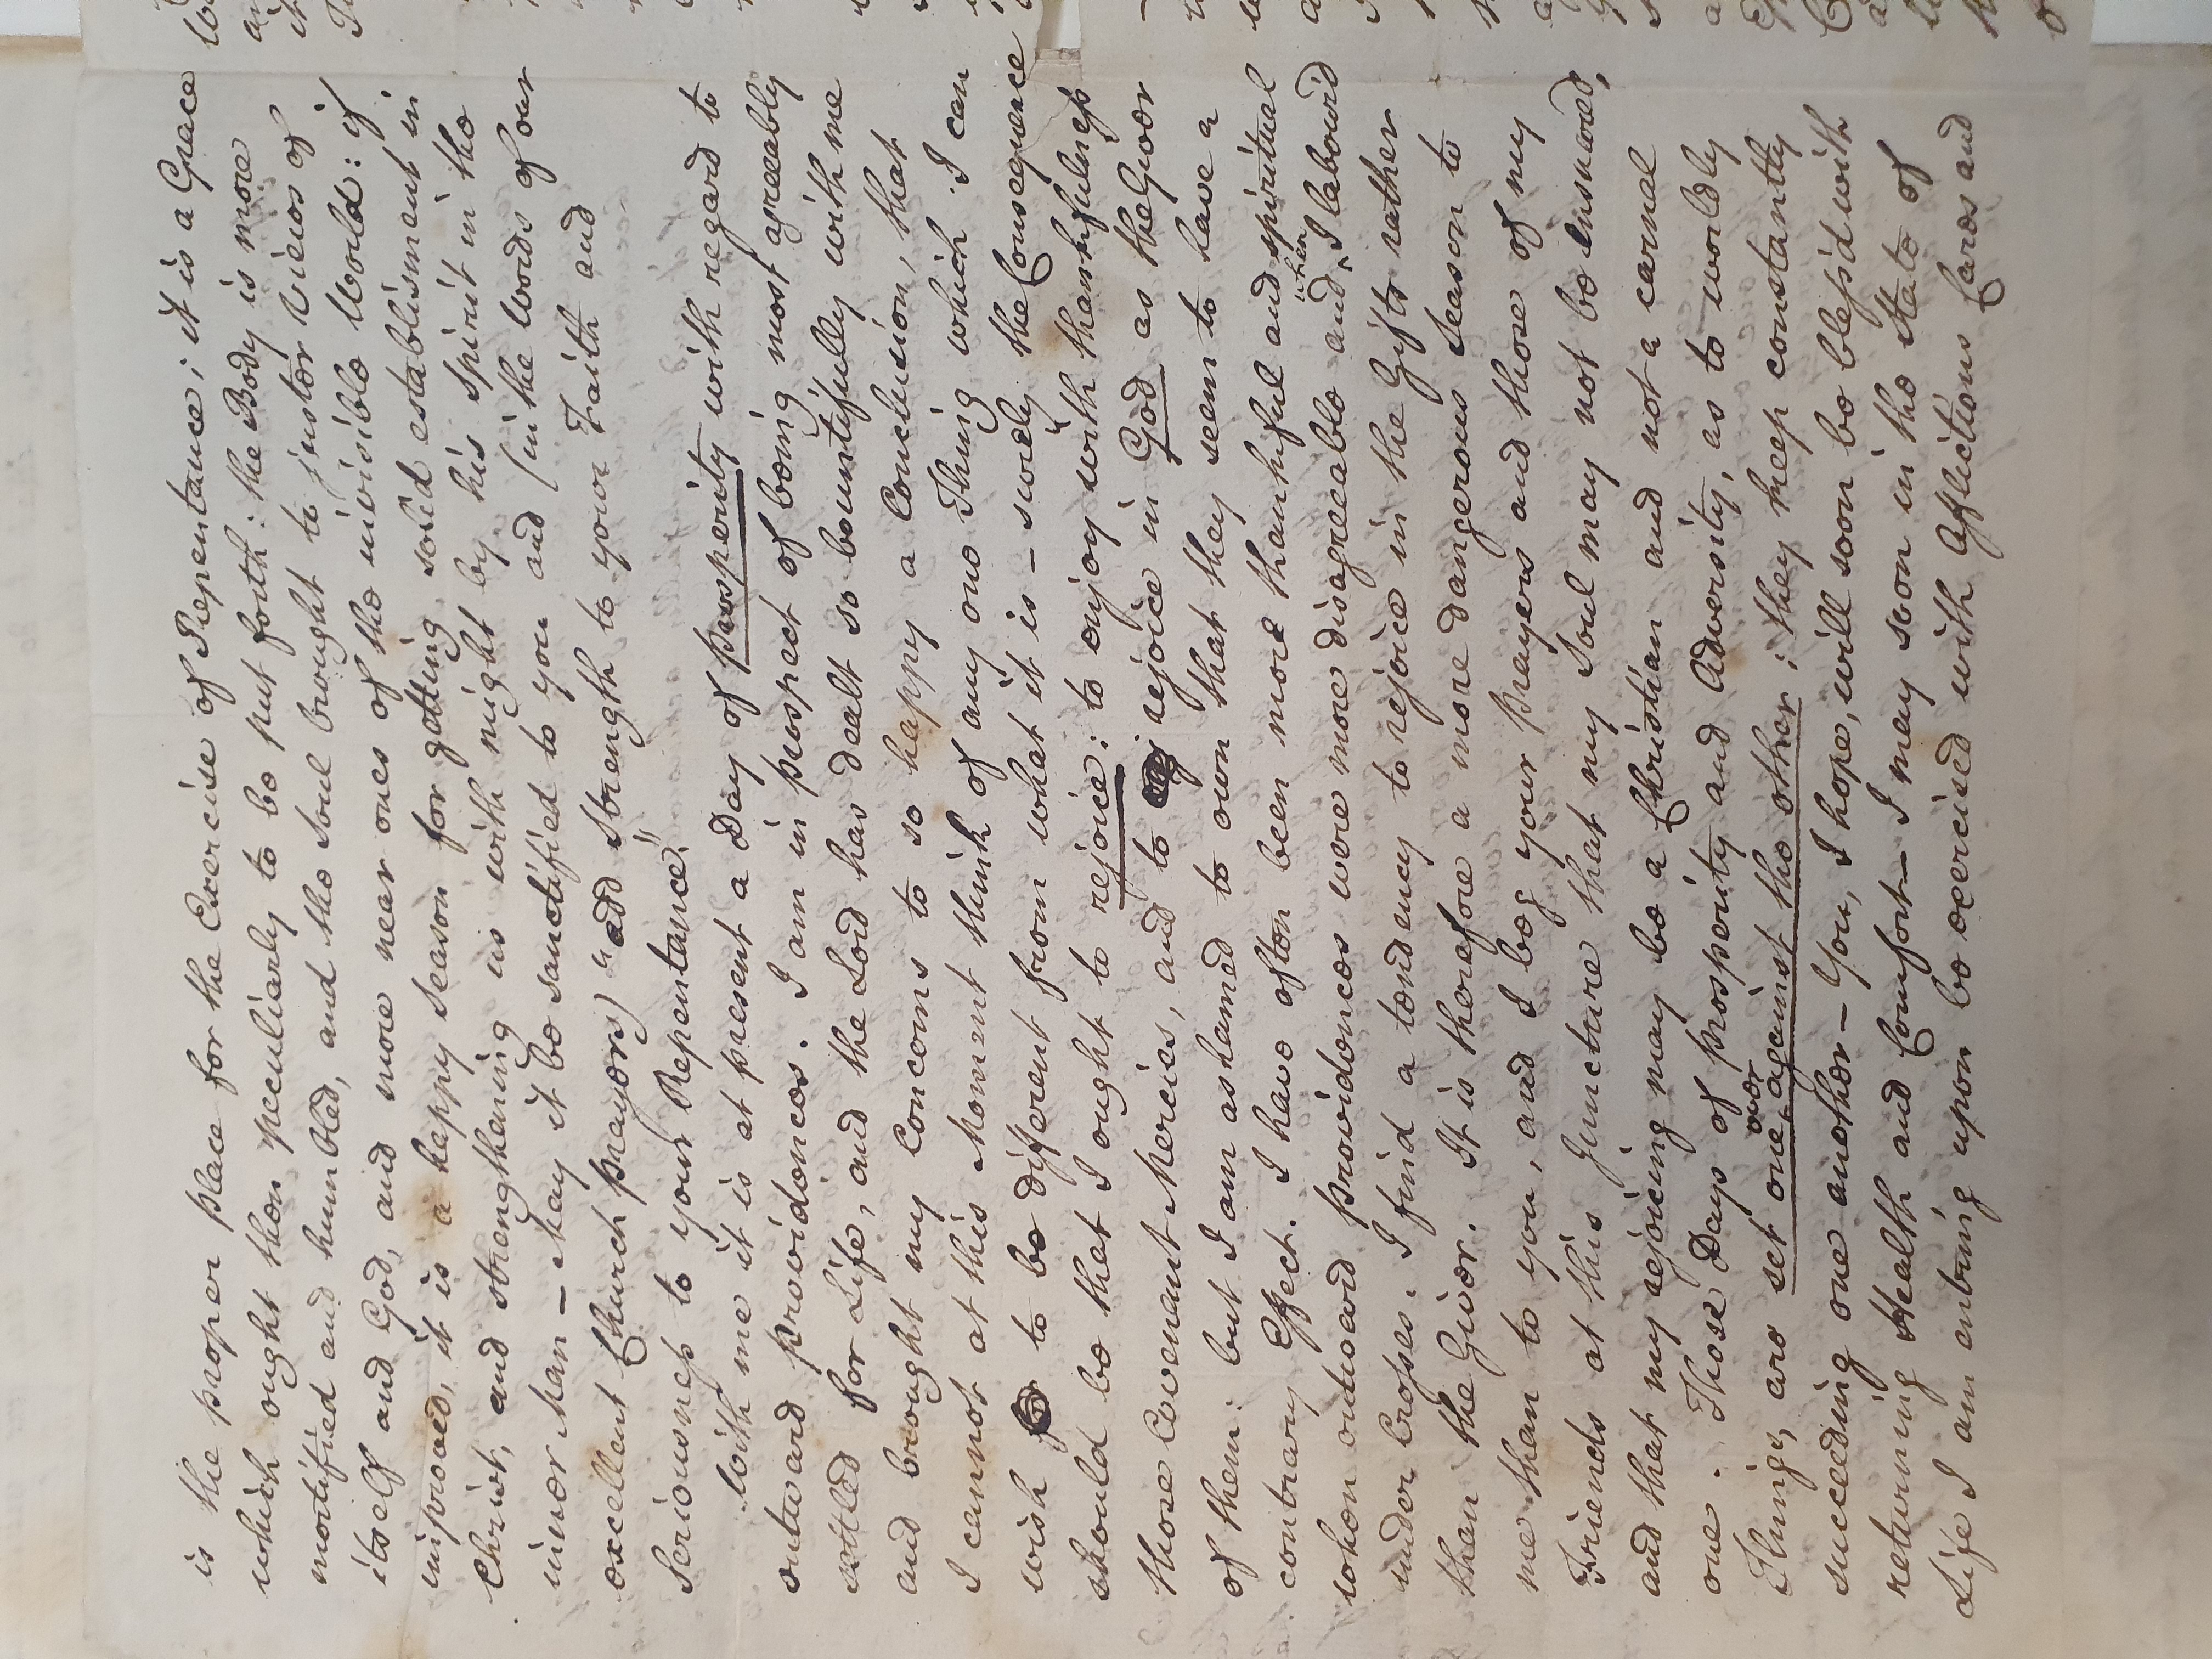 is the proper place for the Exercise of Repentance; it is a Grace
which ought then peculiarly to be put forth: the Body is more
mortified and humbled, and the Soul brought to juster Views of
itself and God, and more near ones of the invisible World: if
improved, it is a happy season for getting solid establisment in
Christ, and strengthening us with might by his spirit in the
inner Man – May it be sanctified to you and (in the words of our
excellent Church prayers) "add strength to your Faith and
Seriousness to your Repentance".
With me it is at present a Day of prosperity with regard to
outward providences. I am in prospect of being most agreeably
settled for Life, and the Lord has dealt so bountifully with me
and brought my Concerns to so happy a Conclusion, that
I cannot at this Moment think of any one Thing which I can
wish to be different from what it is – surely the Consequence
should be that I ought to rejoice: to enjoy with thankfulness
those Covenant Mercies, and to rejoice in God as the Giver
of them: but I am ashamed to own that they seem to have a
contrary Effect. I have often been more thankful and spiritual
when outward providences were more disagreeable and when I labour'd
under Crosses. I find a tendency to rejoice in the Gifts rather
than the Giver. It is therefore a more dangerous Season to
me than to you, and I beg your prayers and those of my
Friends at this Juncture that my Soul may not be ensnared,
and that my rejoicing may be a Christian and not a carnal
one. Those Days of prosperity and Adversity, as to worldly
Things, are set one over against the other; they keep constantly
succeeding one another – You, I hope, will soon be bless'd with
returning Health and Comfort – I may soon in the State of
Life I am entring upon be exercised with Afflictions Cares and